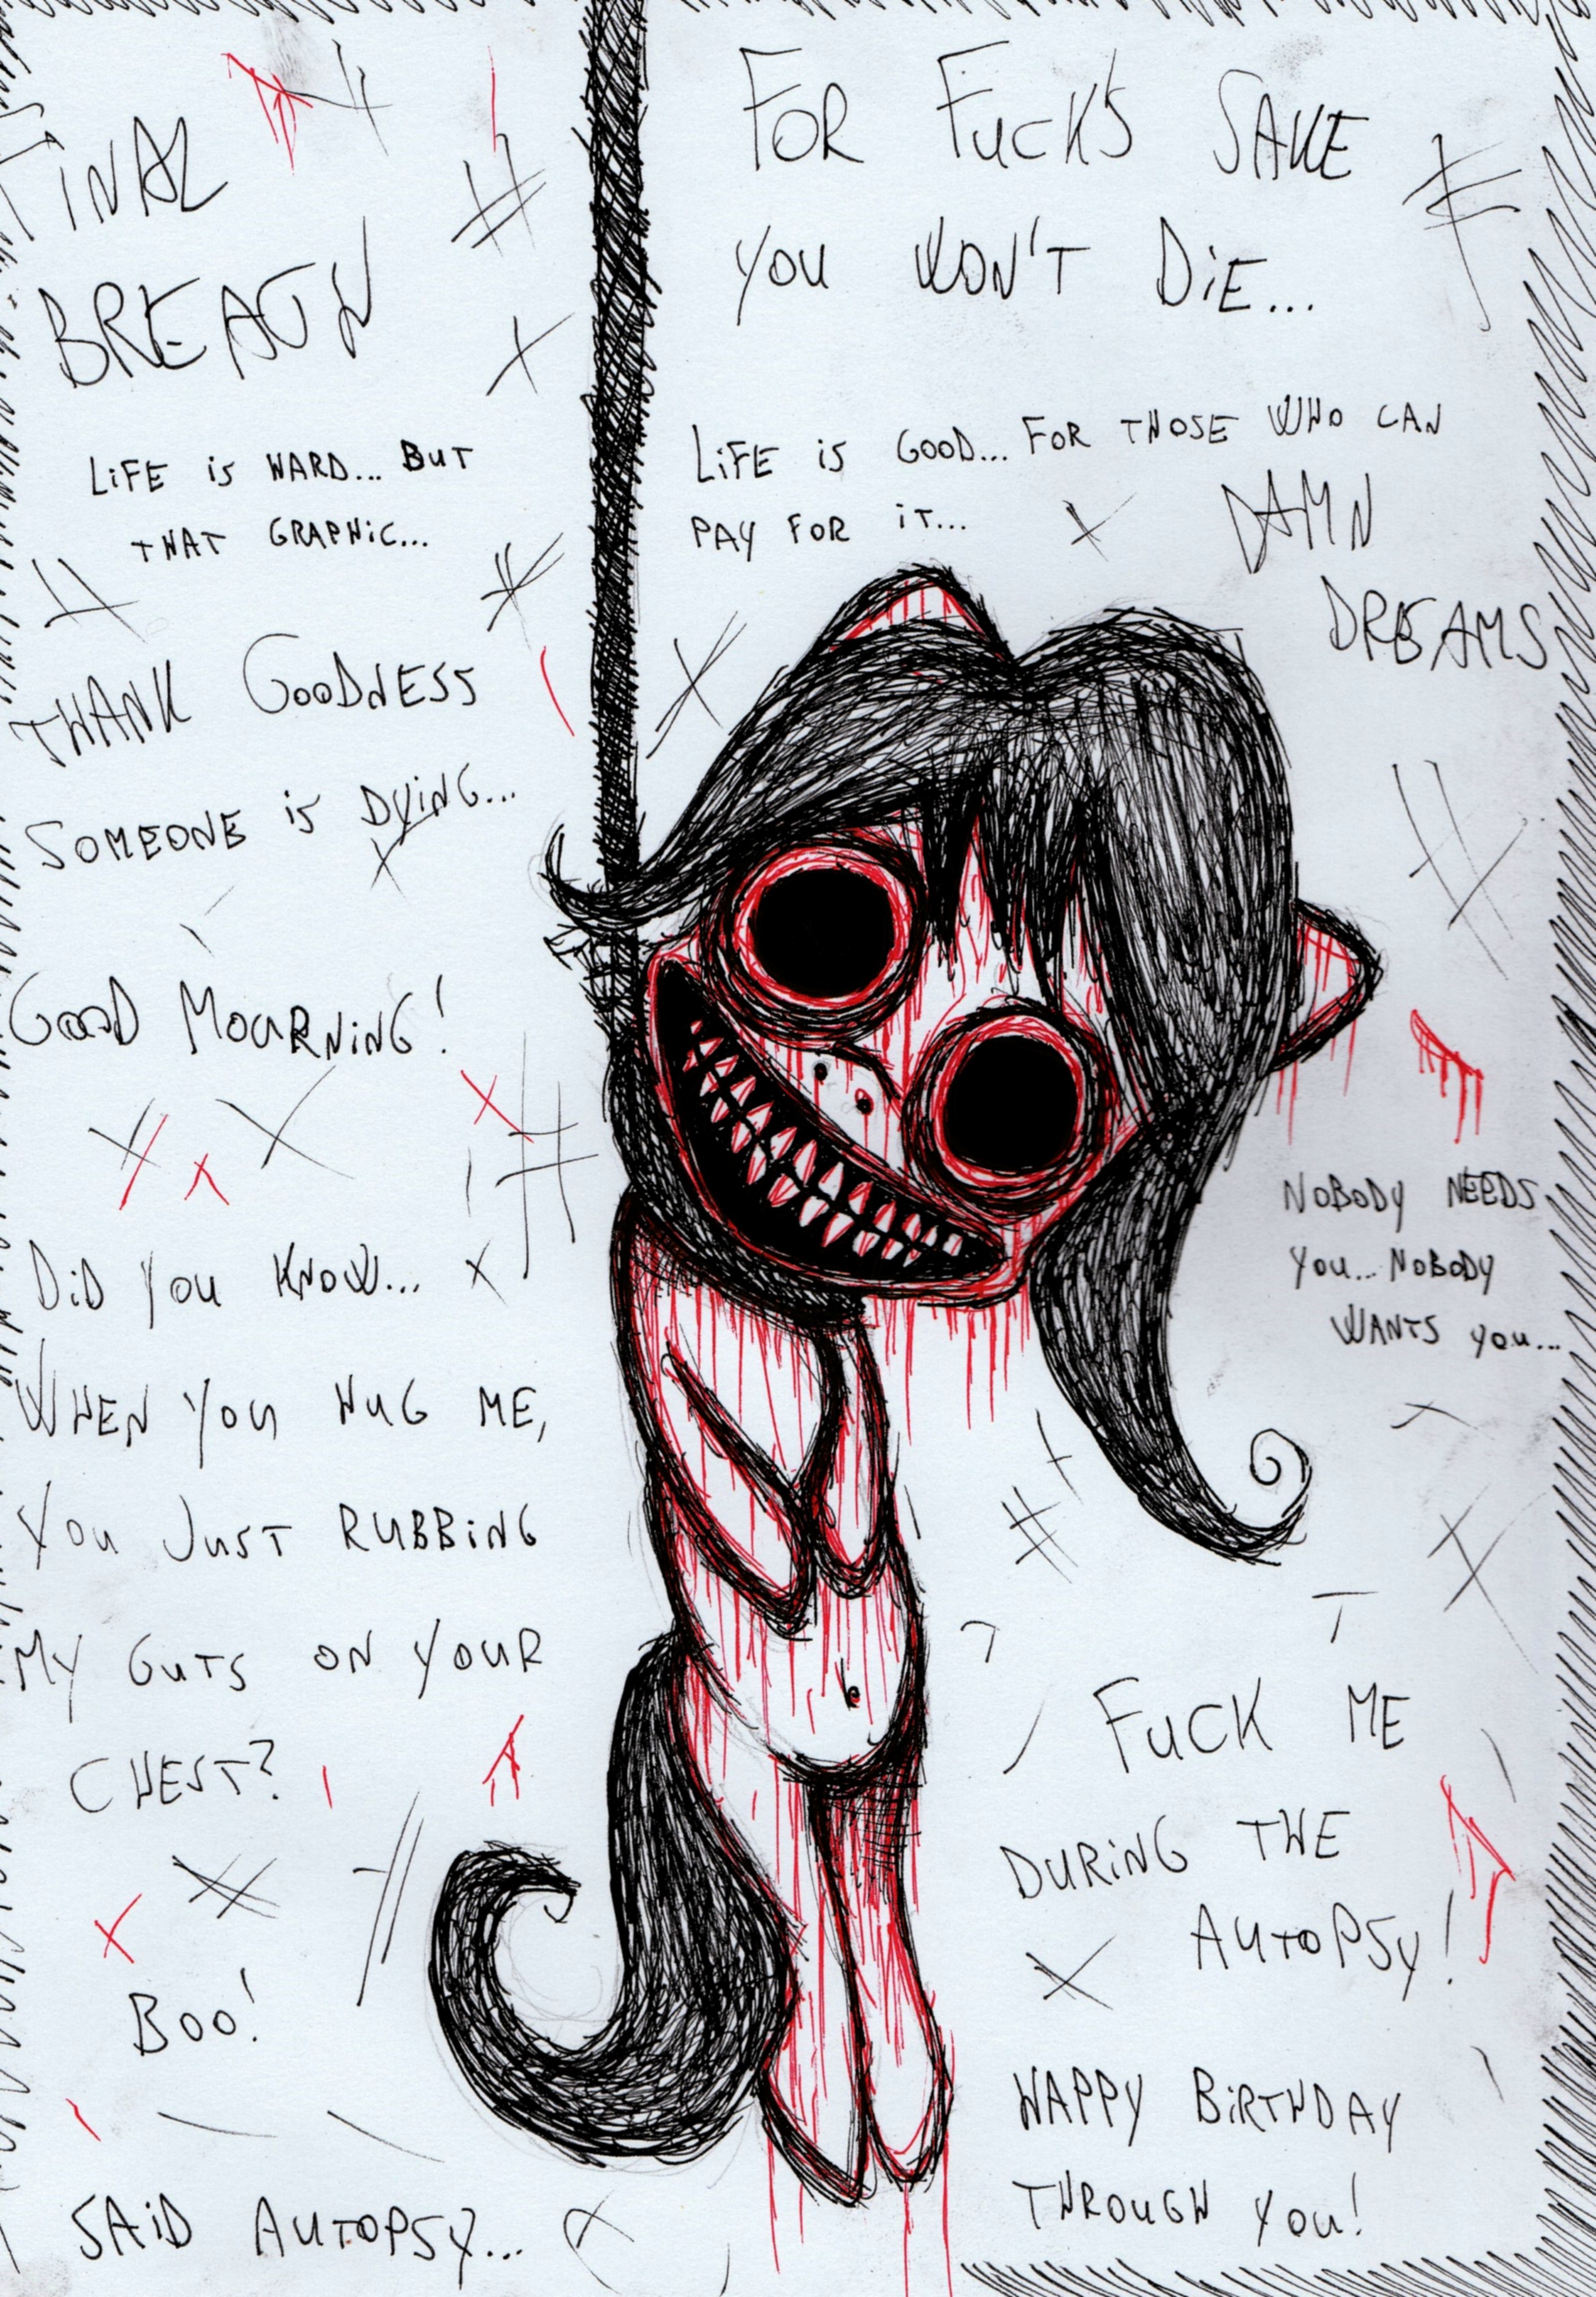 FINAL
BREATH
LIFE IS HARD... BUT
THAT GRAPHIC...
THANK GOODNESS
SOMEONE IS DYING...
GOOD MOURNING!
DID YOU KNOW...
WHEN YOU HUG ME,
YOU JUST RUBBING
MY GUTS ON YOUR
CHEST?
BOO!
SAID AUTOPSY...
FOR FUCK'S SAKE
YOU WON'T DIE...
LIFE IS GOOD... FOR THOSE WHO CAN
PAY FOR IT...
DAMN
DREAMS
NOBODY NEEDS
YOU... NOBODY
WANTS YOU...
FUCK ME
DURING THE
AUTOPSY!
HAPPY BIRTHDAY
THROUGH YOU!